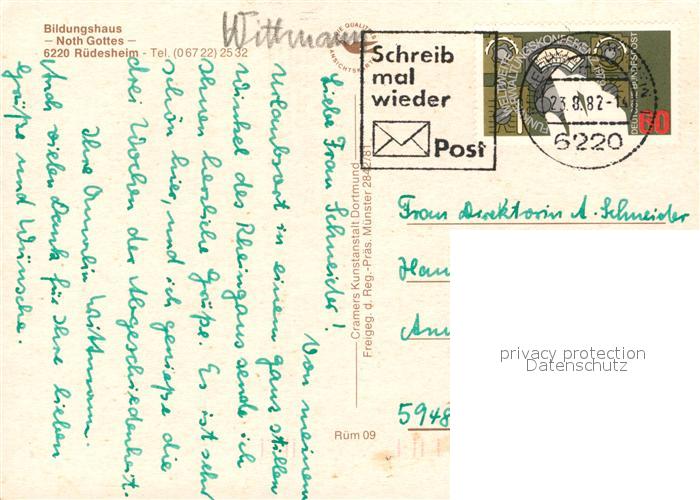 Bildungshaus
– Noth Gottes –
6220 Rüdesheim - Tel. (0 67 22) 25 32
Wittmann
Liebe Frau Schneider!
Von meinem
Urlaubsort in einem ganz stillen
Winkel des Rheingaus sende ich
Ihnen herzliche Grüße. Es ist sehr
schön hier, und ich genieße die
drei Wochen der Abgeschiedenheit.
Ihre Annelin Wittmann.
Auch vielen Dank für Ihre lieben
Grüße und Wünsche.
Cramers Kunstanstalt Dortmund
Freigeg. d. Reg.-Präs. Münster 2842/81
Rüm 09
Schreib
mal
wieder
Post
DEUTSCHE BUNDESPOST
60
23.8.82-14
6220
Frau Direktorin A. Schneider
5948
privacy protection
Datenschutz